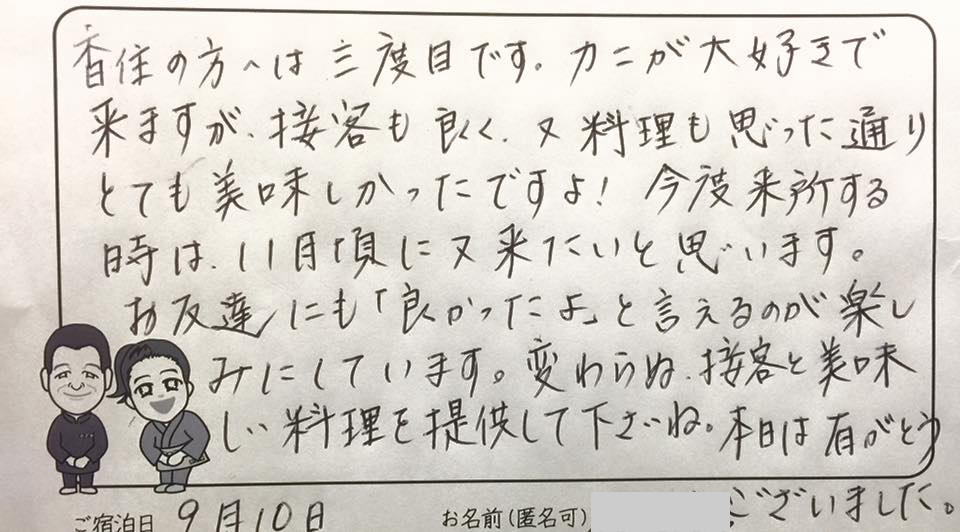 香住の方へは三度目です。カニが大好きで
来ますが、接客も良く、又料理も思った通り
とても美味しかったですよ！今度来所する
時は、11月頃に又来たいと思います。
お友達にも「良かったよ」と言えるのが楽し
みにしています。変わらぬ、接客と美味
しい料理を提供して下さいね。本日は有がとう
ございました。
ご宿泊日 9月10日 お名前（匿名可）